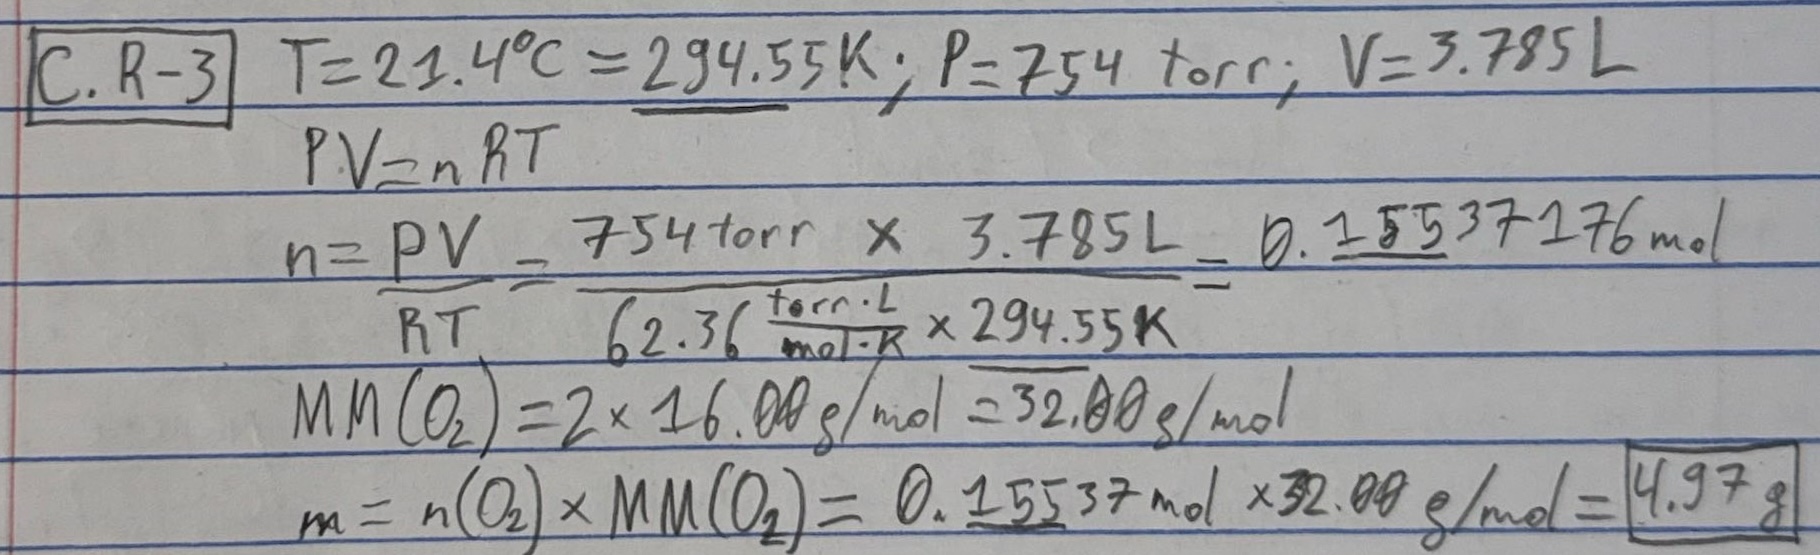 C.R-3 T=21.4°C=294.55K; P=754 torr; V=3.785L
PV=nRT
n=PV/RT=754torr × 3.785L/62.36 torr·L/mol·K × 294.55K=0.15537176mol
MM(O₂)=2×16.00g/mol=32.00g/mol
m=n(O₂)×MM(O₂)=0.15537mol×32.00 g/mol=4.97g